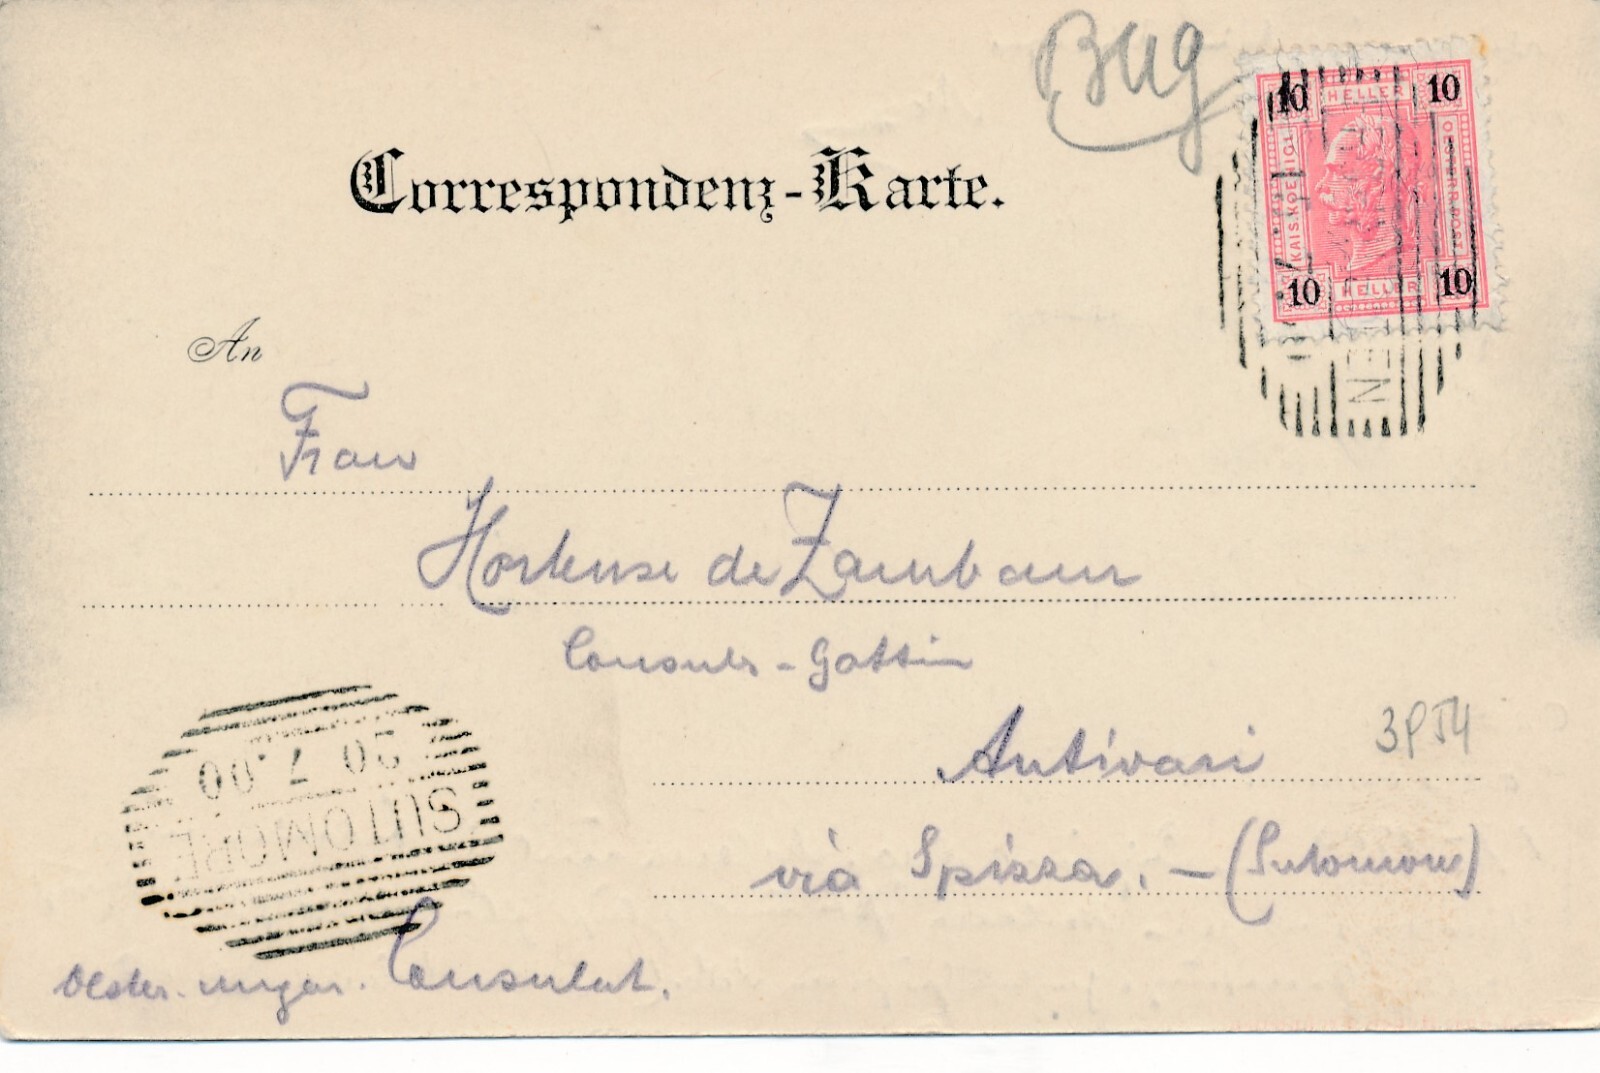 Bug
10 HELLER 10
KAISKOENIGL
OESTERR POST
10 HELLER 10
Correspondenz-Karte.
An
Frau
Hortense de Zambaur
Consuls-Gattin
Antivari
3P54
via Spizza. - (Sutomore)
20 7.00
SUTOMORE
Oester. ungar. Consulat.